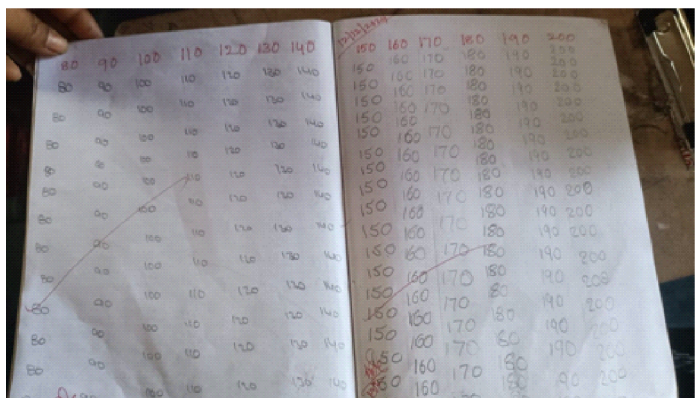 80 90 100 110 120 130 140
80 90 100 110 120 130 140
100 110 120 130 140
80 90 100 110 120 130 140
80 90 100 110 120 130 140
80 90 100 110 120 130 140
80 90 100 110 120 130 140
80 90 100 110 120 130 140
80 90 100 110 120 130 140
80 90 100 110 120 130 140
80 90 100 110 120 130 140
80 90 100 110 120 130 140
100 110 120 130 140
150 160 170 180 190 200
150 160 170 180 190 200
150 160 170 180 190 200
150 160 170 180 190 200
150 160 170 180 190 200
150 160 170 180 190 200
150 160 170 180 190 200
150 160 170 180 190 200
150 160 170 180 190 200
150 160 170 180 190 200
150 160 170 180 190 200
150 160 170 180 190 200
150 160 170 180 190 200
150 160 170 80 190 200
150 160 170 180 190 200
150 160 170 80 190 200
150 160 170 180 90 200
160